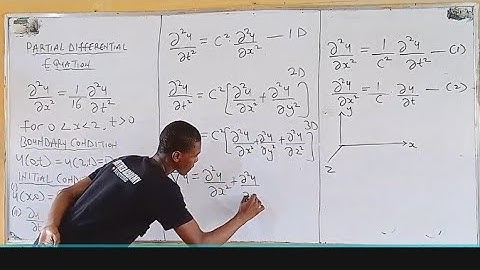 PARTIAL DIFFERENTIAL
EQUATION
∂²u/∂x² = 1/16 ∂²u/∂t²
for 0 < x < 2, t > 0
BOUNDARY CONDITION
u(0,t) = u(2,t) =
INITIAL COND
(i)
u(x,0) =
(ii) ∂u/∂t
∂²u/∂t² = C² ∂²u/∂x² — 1D
2D
∂²u/∂t² = C² [∂²u/∂x² + ∂²u/∂y²]
3D
= C² [∂²u/∂x² + ∂²u/∂y² + ∂²u/∂z²]
= ∂²u/∂x² + ∂²u/∂
∂²u/∂x² = 1/C² ∂²u/∂t² — (1)
∂²u/∂x² = 1/C ∂u/∂t — (2)
y
x
z